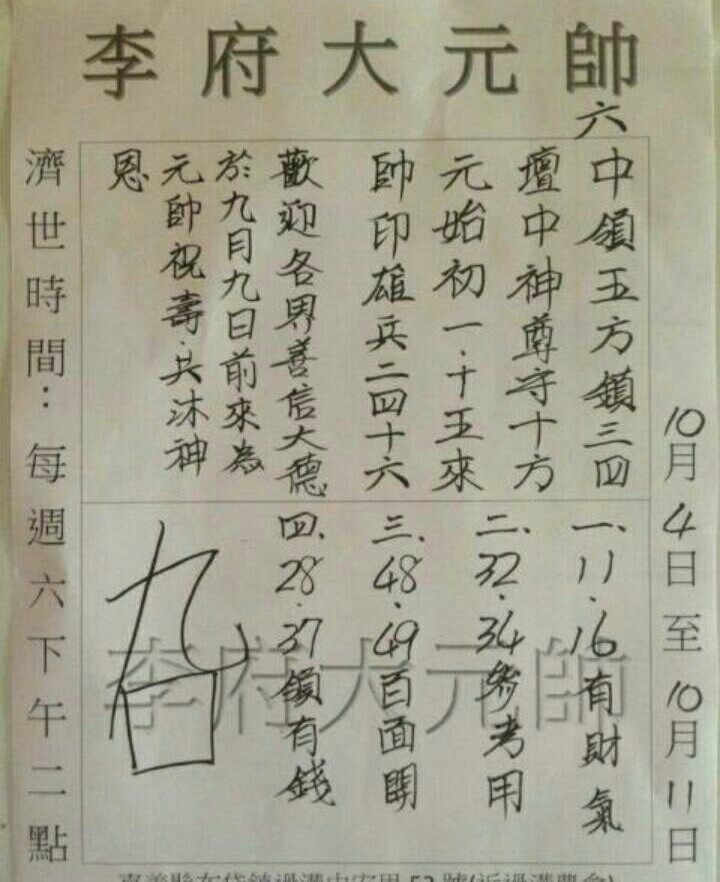 李府大元帥
10月4日至10月11日
六
中領五方鎮三四
壇中神尊守十方
元始初一.十五來
帥印雄兵二四十六
歡迎各界善信大德
於九月九日前來為
元帥祝壽.共沐神
恩
一、11.16有財氣
二、32.34參考用
三、48.49百面開
四、28.37領有錢
李府大元帥
濟世時間：每週六下午二點